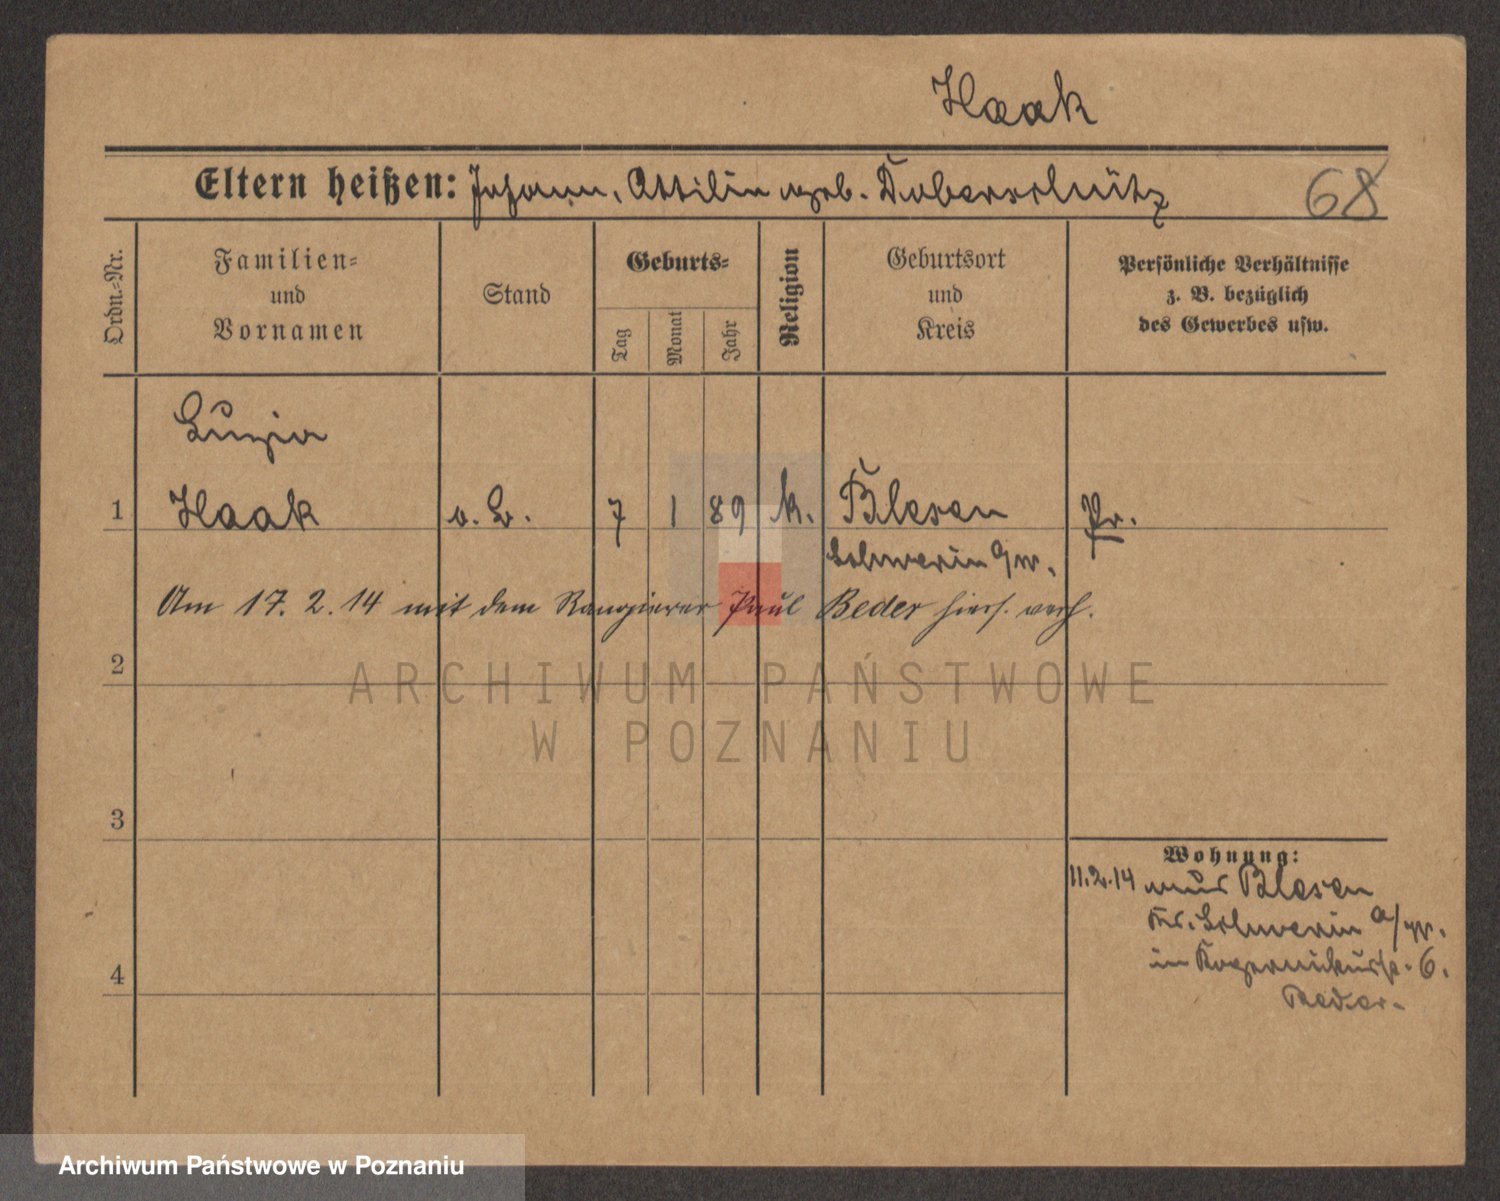 Haak
Eltern heißen: Johann, Ottilie geb. Doberschütz 68
Ordn.-Nr.
Familien-
und
Vornamen
Stand
Geburts-
Tag
Monat
Jahr
Religion
Geburtsort
und
Kreis
Persönliche Verhältnisse
z. B. bezüglich
des Gewerbes usw.
Luzia
1 Haak o. B. 7 1 89 k. Blesen Pr.
Schwerin a/w.
Am 17. 2. 14 mit dem Rangierer Paul Beder hiers. verh.
2
ARCHIWUM PAŃSTWOWE
W POZNANIU
3
Wohnung:
11.2.14 aus Blesen
Kr. Schwerin a/w.
in Kopernikusstr. 6.
Beder.
4
Archiwum Państwowe w Poznaniu